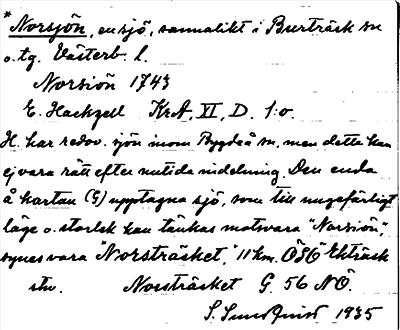 * Norsjön, en sjö, sannolikt i Burträsk sn
o. tg. Västerb. l.
Norsiön 1743
E. Hackzell KrA, VI, D. 1:o.
H. har redov. sjön inom Bygdeå sn, men detta kan
ej vara rätt efter nutida indelning. Den enda
å kartan (G) upptagna sjö, som till ungefärligt
läge o. storlek kan tänkas motsvara "Norsiön",
synes vara "Norsträsket," 11 km. ÖSÖ Ekträsk
stn. Norsträsket G. 56 NÖ.
S. Sundqvist 1935